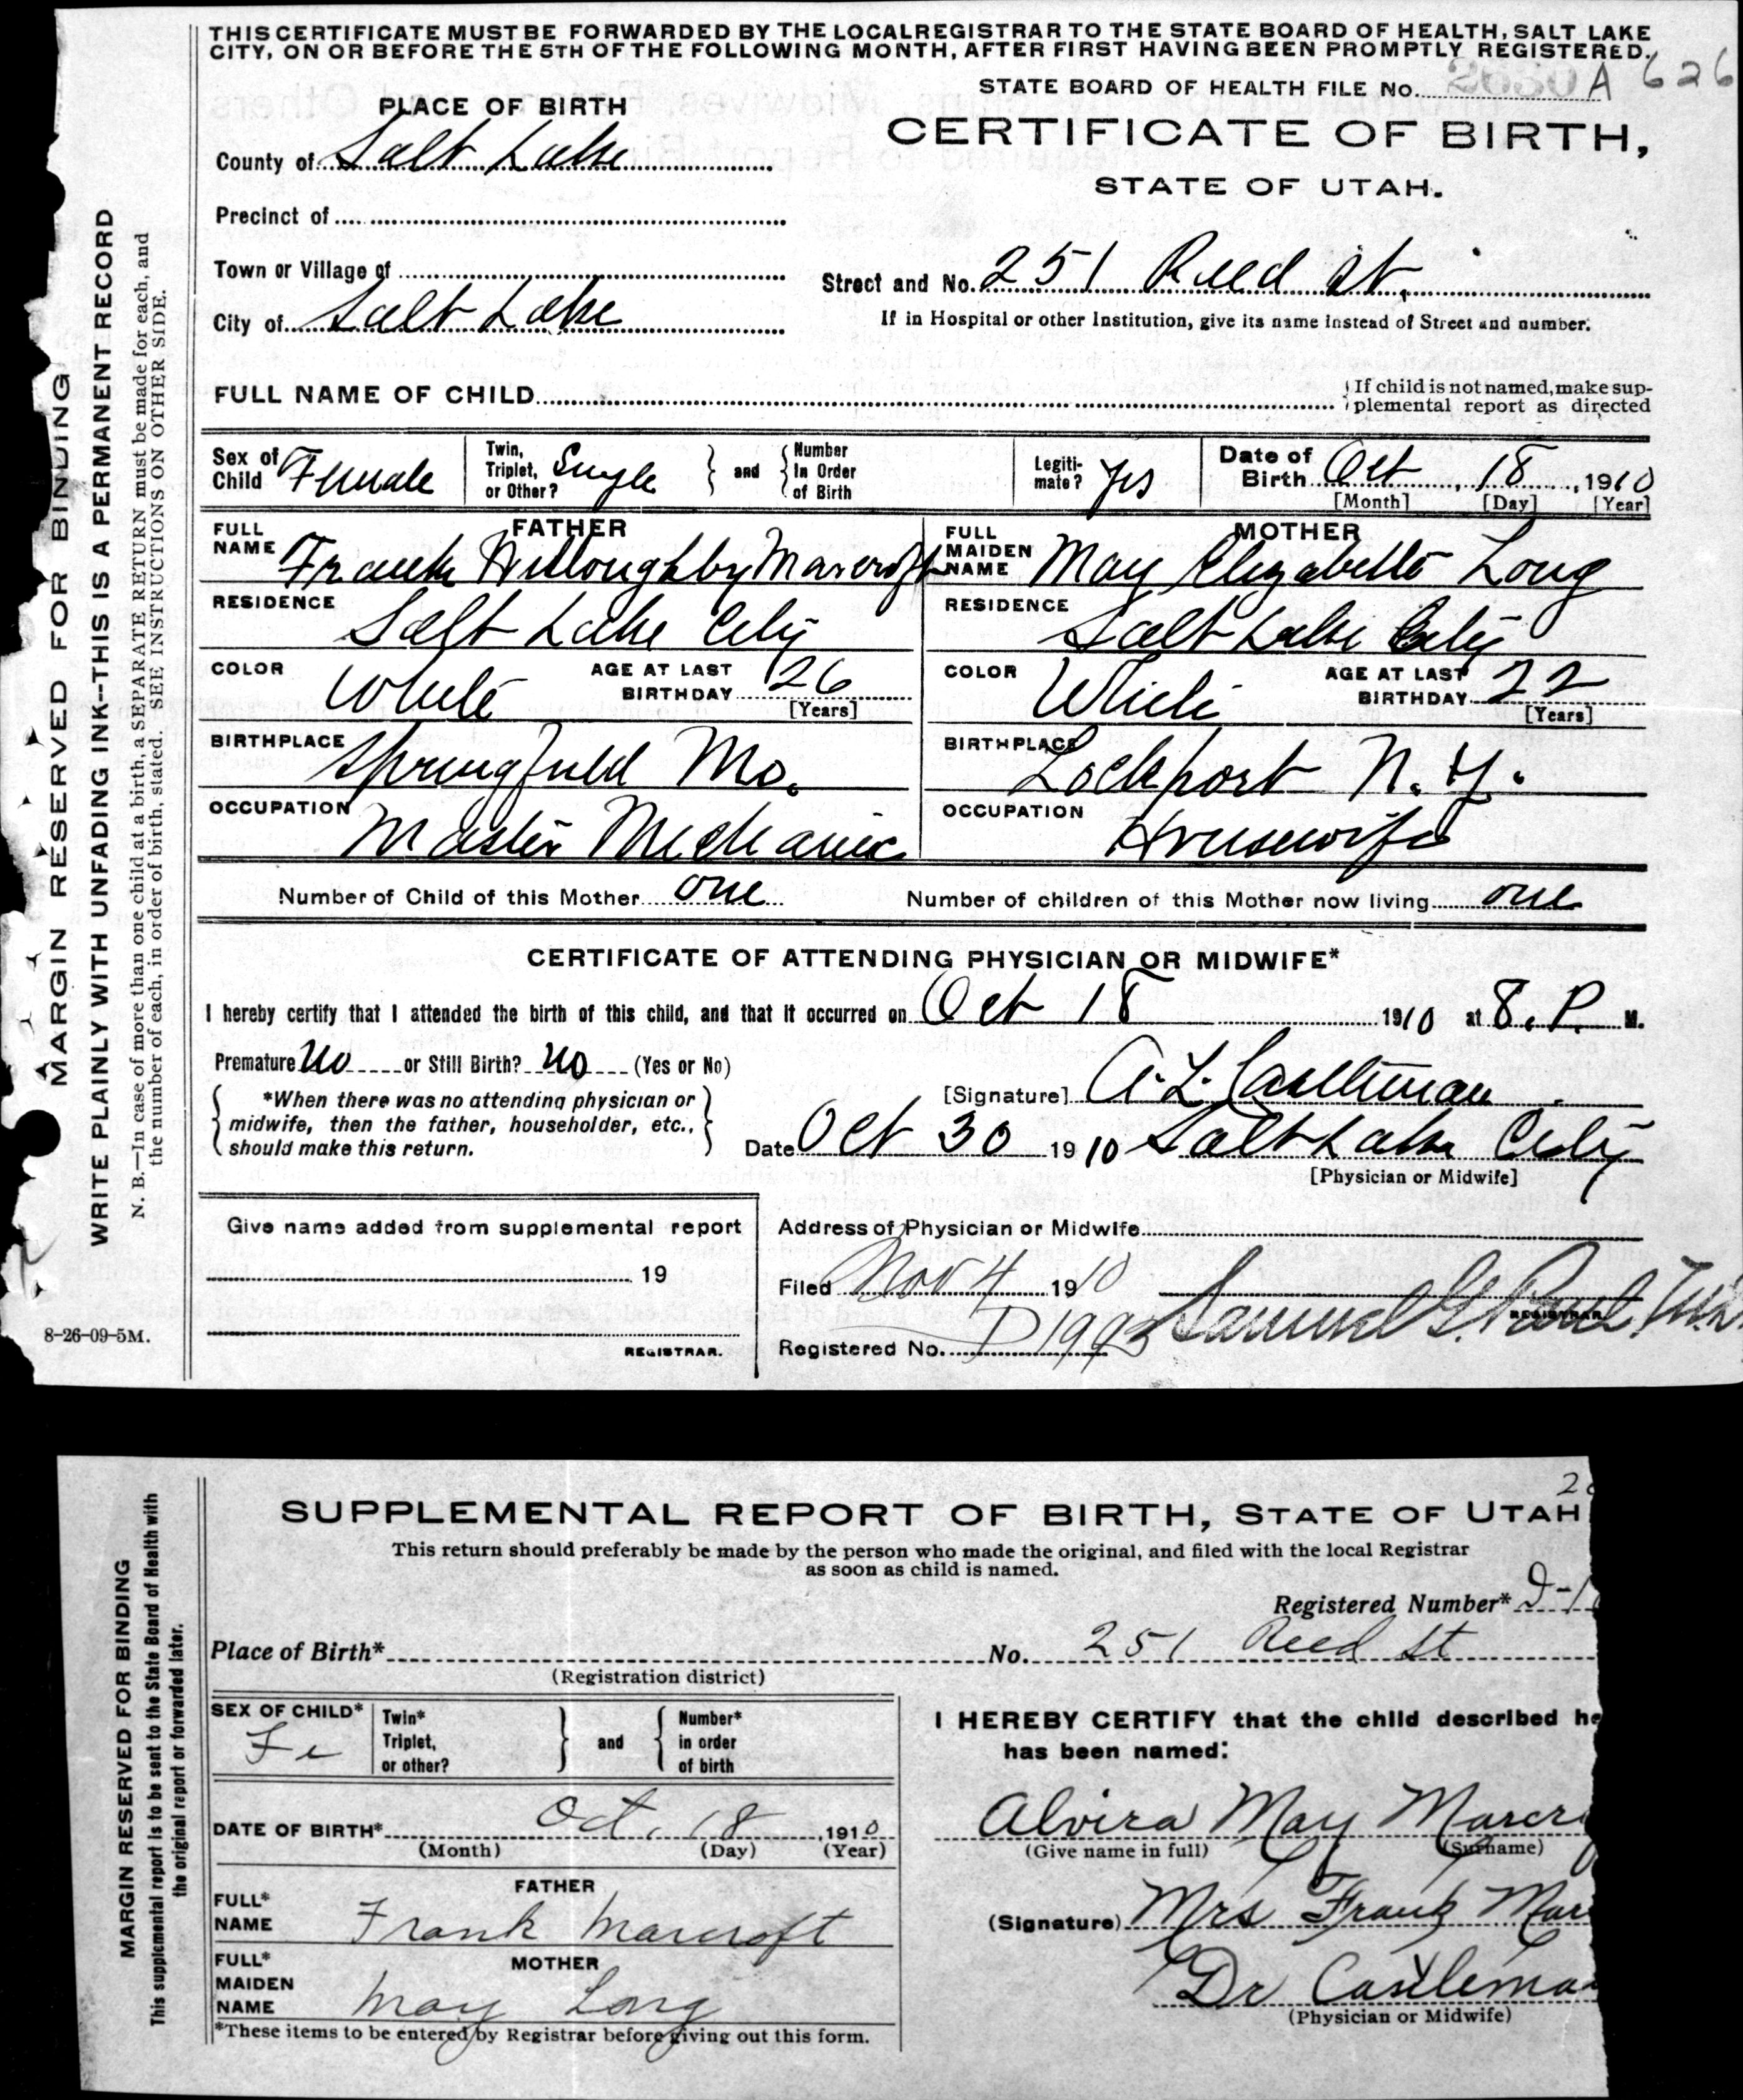 THIS CERTIFICATE MUST BE FORWARDED BY THE LOCAL REGISTRAR TO THE STATE BOARD OF HEALTH, SALT LAKE
CITY, ON OR BEFORE THE 5TH OF THE FOLLOWING MONTH, AFTER FIRST HAVING BEEN PROMPTLY REGISTERED.
STATE BOARD OF HEALTH FILE No. A 626
PLACE OF BIRTH
CERTIFICATE OF BIRTH,
County of Salt Lake
STATE OF UTAH.
Precinct of
Town or Village of
Street and No. 251 Reed St.
City of Salt Lake
If in Hospital or other Institution, give its name instead of Street and number.
FULL NAME OF CHILD
If child is not named, make sup-
plemental report as directed
Sex of Child Female
Twin, Triplet, or Other? Single
and Number In Order of Birth
Legiti-mate? Yes
Date of Birth Oct 18, 1910
[Month] [Day] [Year]
FATHER
FULL NAME Frank Willoughby Marcroft
MOTHER
FULL MAIDEN NAME May Elizabeth Long
RESIDENCE Salt Lake City
RESIDENCE Salt Lake City
COLOR White AGE AT LAST BIRTHDAY 26 [Years]
COLOR White AGE AT LAST BIRTHDAY 22 [Years]
BIRTHPLACE Springfield Mo.
BIRTHPLACE Lockport N.Y.
OCCUPATION Master Mechanic
OCCUPATION Housewife
Number of Child of this Mother one
Number of children of this Mother now living one
CERTIFICATE OF ATTENDING PHYSICIAN OR MIDWIFE*
I hereby certify that I attended the birth of this child, and that it occurred on Oct 18 1910 at 8. P. M.
Premature No or Still Birth? No (Yes or No)
*When there was no attending physician or
midwife, then the father, householder, etc.,
should make this return.
[Signature] A. L. Castleman
Date Oct 30 1910 Salt Lake City
[Physician or Midwife]
Give name added from supplemental report
19
REGISTRAR.
Address of Physician or Midwife
Filed Nov 4 1910
Samuel G. Paul
REGISTRAR
Registered No. D 1993
8-26-09-5M.
MARGIN RESERVED FOR BINDING
WRITE PLAINLY WITH UNFADING INK--THIS IS A PERMANENT RECORD
N. B.—In case of more than one child at a birth, a SEPARATE RETURN must be made for each, and
the number of each, in order of birth, stated. SEE INSTRUCTIONS ON OTHER SIDE.
SUPPLEMENTAL REPORT OF BIRTH, STATE OF UTAH
This return should preferably be made by the person who made the original, and filed with the local Registrar
as soon as child is named.
Registered Number* D-1
Place of Birth* No. 251 Reed St
(Registration district)
SEX OF CHILD* Fe
Twin* Triplet, or other?
and Number* in order of birth
I HEREBY CERTIFY that the child described he
has been named:
DATE OF BIRTH* Oct. 18, 1910
(Month) (Day) (Year)
Alvira May Marcr
(Give name in full) (Surname)
FATHER
FULL* NAME Frank Marcroft
(Signature) Mrs Frank Mar
MOTHER
FULL* MAIDEN NAME May Long
Dr Castlema
(Physician or Midwife)
*These items to be entered by Registrar before giving out this form.
MARGIN RESERVED FOR BINDING
This supplemental report is to be sent to the State Board of Health with
the original report or forwarded later.